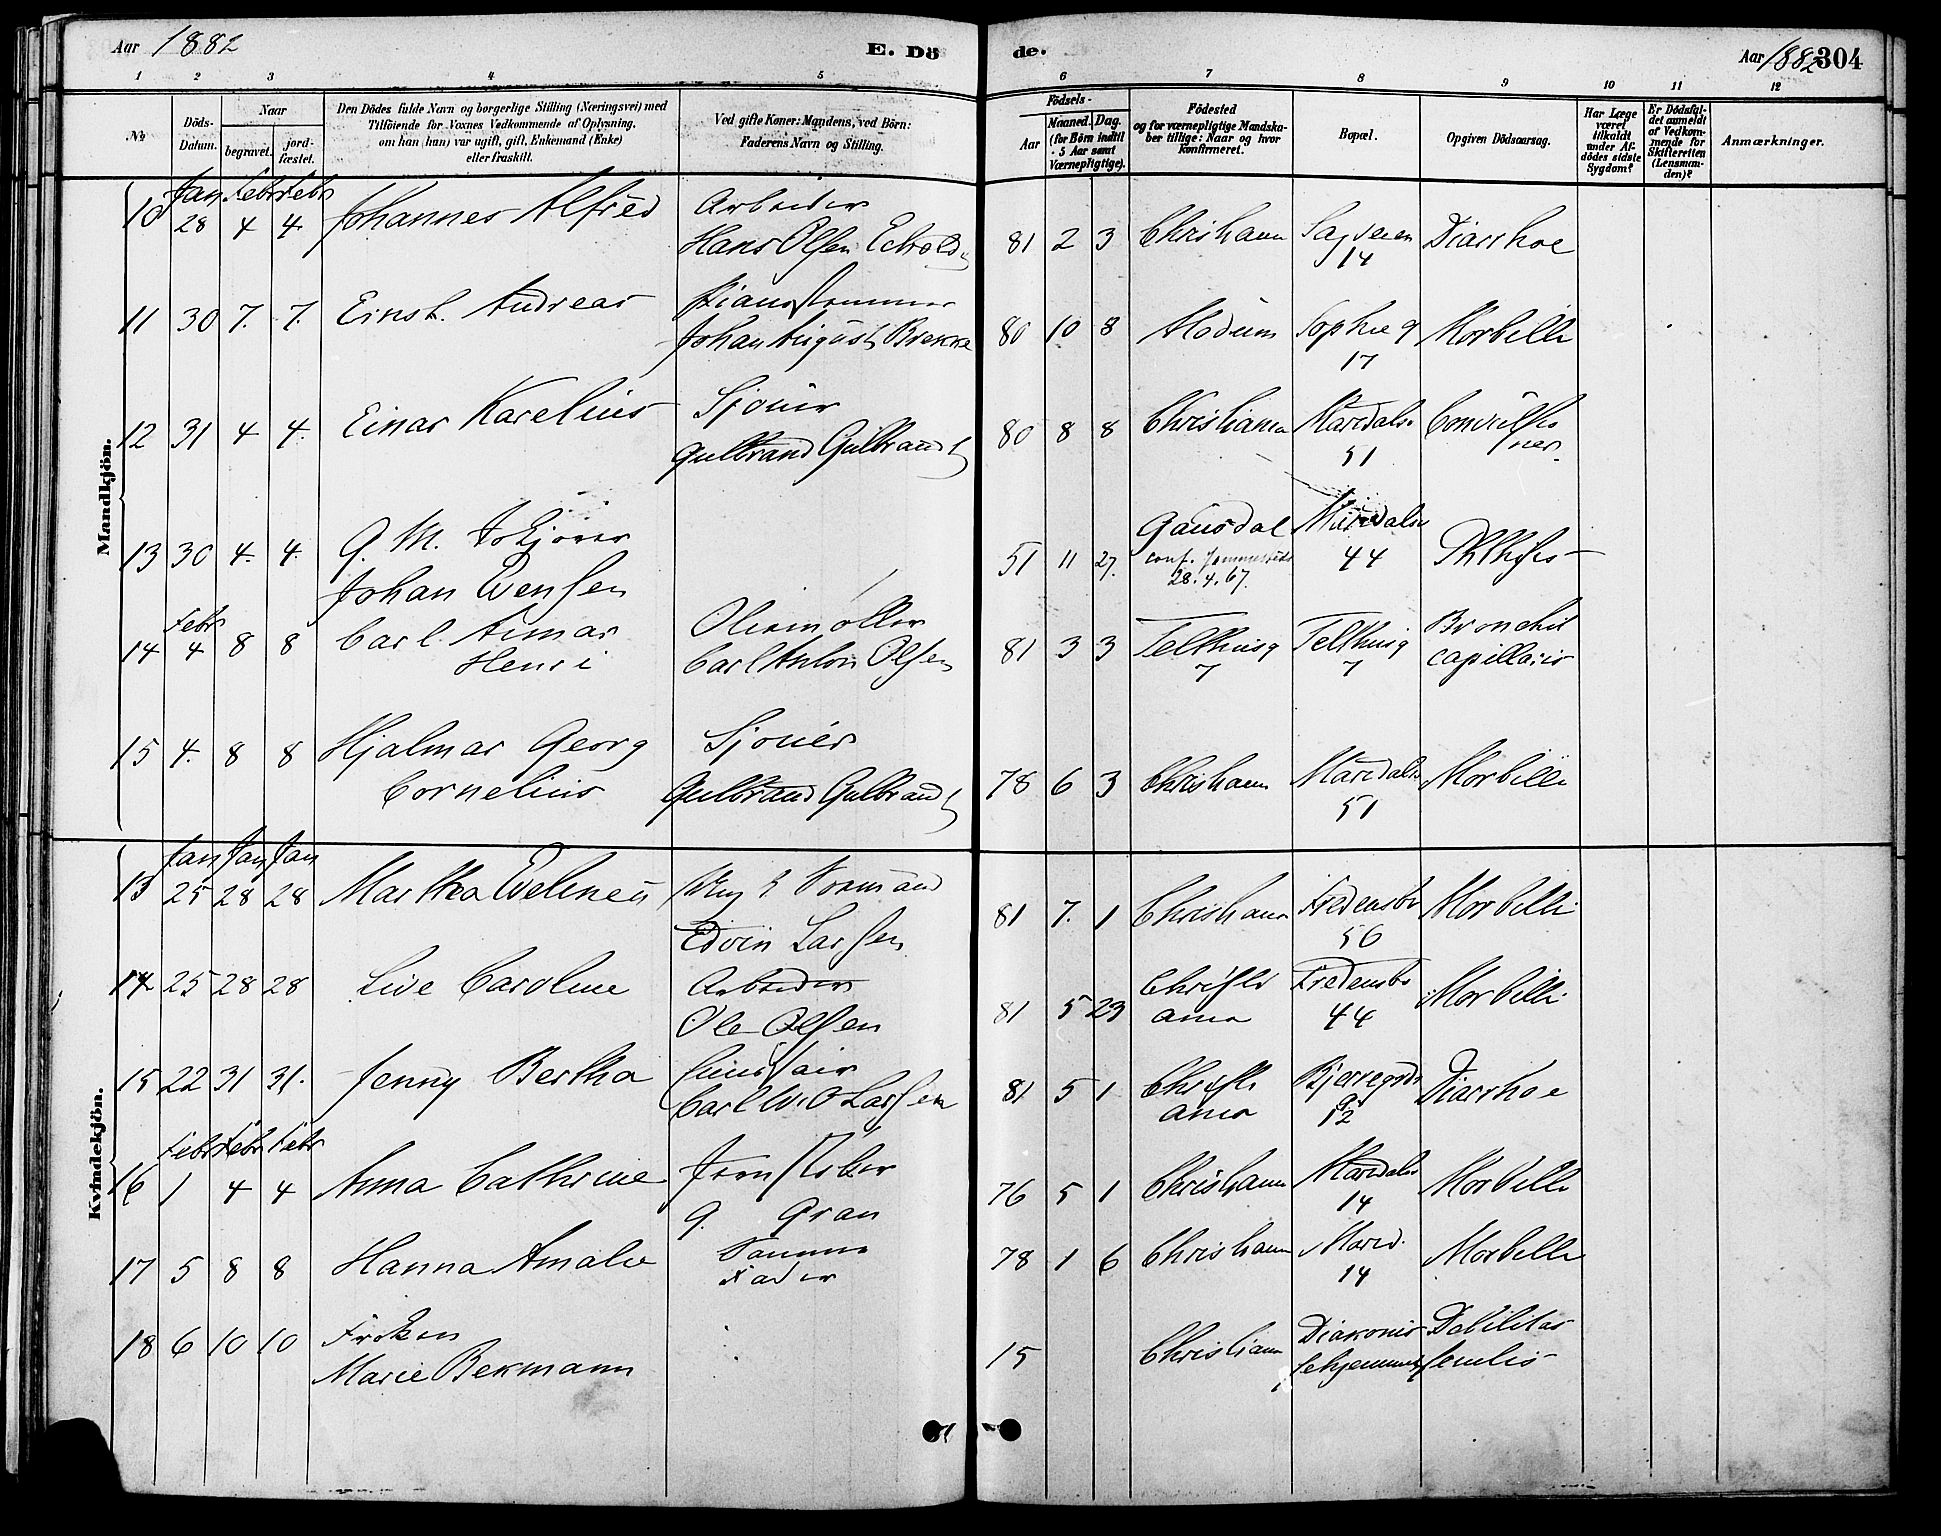 Aar 1882
E. Dö
de.
Aar 1882
304
1 2 3 4 5 6 7 8 9 10 11 12
No
Döds-
Datum.
Naar
begravet.
jord-
fæstet.
Den Dödes fulde Navn og borgerlige Stilling (Næringsvei) med
Tilföiende for Voxnes Vedkommende af Oplysning,
om han (hun) var ugift, gift, Enkemand (Enke)
eller fraskilt.
Ved gifte Koner: Mandens, ved Börn:
Faderens Navn og Stilling.
Födsels-
Aar
Maaned.
Dag.
(for Börn indtil
5 Aar samt
Værnepligtige).
Födested
og for værnepligtige Mandska-
ber tillige: Naar og hvor
konfirmeret.
Bopæl.
Opgiven Dödsaarsag.
Har Læge
været
tilkaldt
under Af-
dödes sidste
Sygdom?
Er Dödsfal-
det anmeldt
af Vedkom-
mende for
Skifteretten
(Lensman-
den)?
Anmærkninger.
Mandkjön.
Jan Febr Febr
10 28 4 4. Johannes Alfred Arbeider
Hans Olsen 81 2 3 Christiania Sagveien Diarrhoe
14
11 30 7. 7. Ernst. Andreas
Johan August Brekke 80 10 8 Modum Sophieg Morbilli
17
12 31 4 4. Einar Karelius Sjouer
Gulbrand Gulbrands 80 8 8 Christiania Maridals. Convulsio
51 ner.
13 30 4. 4. G. M.
Johan Evensen 51 11 27. Gausdal Maridals 44 Phthisis
conf.
28.4.67.
Febr
14 4 8 8 Carl. Aimar
Henri
Carl Anton Olsen 81 3 3 Telthusg Telthusg Bronchit
7 7 capillaris
15 4. 8 8 Hjalmar Georg Sjouer
Cornelius Gulbrand Gulbrands 78 6 3 Christiania Maridals Morbilli
51
Kvindekjön.
Jan Jan Jan
13 25 28 28 Martha Formand
Edvin Larsen 81 7. 1 Christiania Fredensb Morbilli
56
14 25 28 28 Live Caroline Arbeider
Ole Olsen 81 5 23 Christi Fredensb Morbilli
ania 44
15 22 31 31. Jenny Bertha
Carl Larsen 81 5 1 Christi Diarrhoe
ania 12
Febr Febr Febr
16 1 4 4 Anna Cathrine Jernstöber
G. Gran 76 5 1 Christiania Maridals Morbilli
14
17 5 8 8 Hanna Amalie Samme
Fader 78 1 6 Christiania Marid. Morbilli
14
18 6 10 10 Fröken
Marie Bekmann 15 Christiania Diakonis Debilitas
sehjemmet senilis